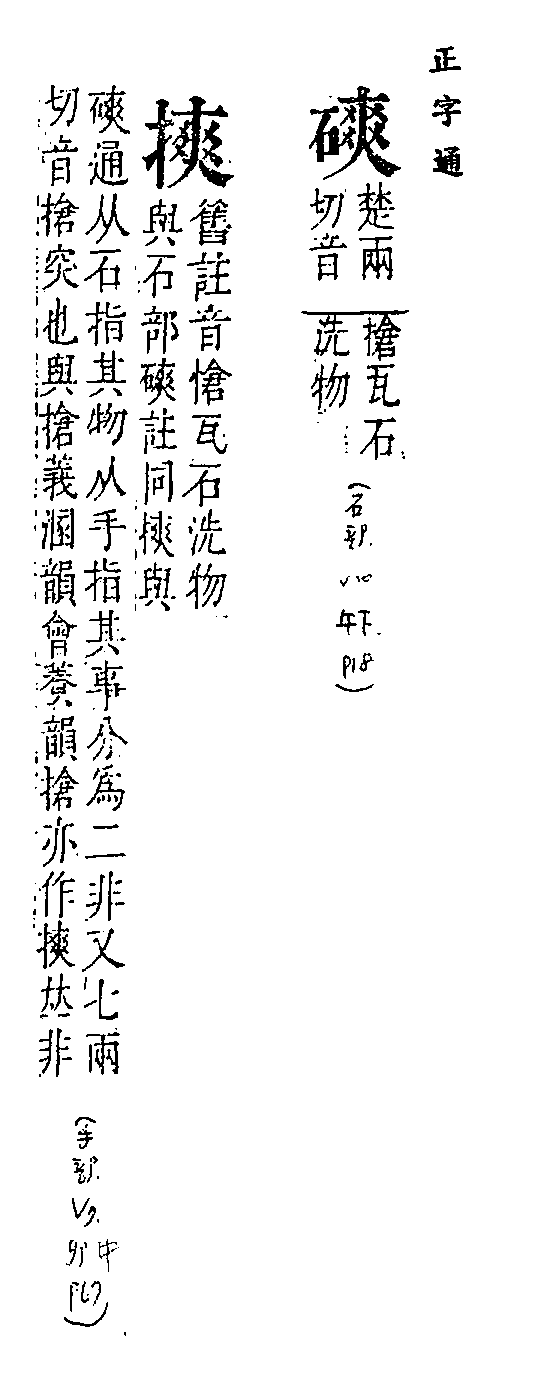 正字通
磢
楚兩
切音
搶瓦石
洗物
(石部.
V10
午下.
P18)
摤
舊註音愴瓦石洗物
與石部磢註同摤與
磢通从石指其物从手指其事分爲二非又七兩
切音搶突也與搶義溷韻會養韻搶亦作摤𠀤非
(手部.
V9.
卯中
P67)